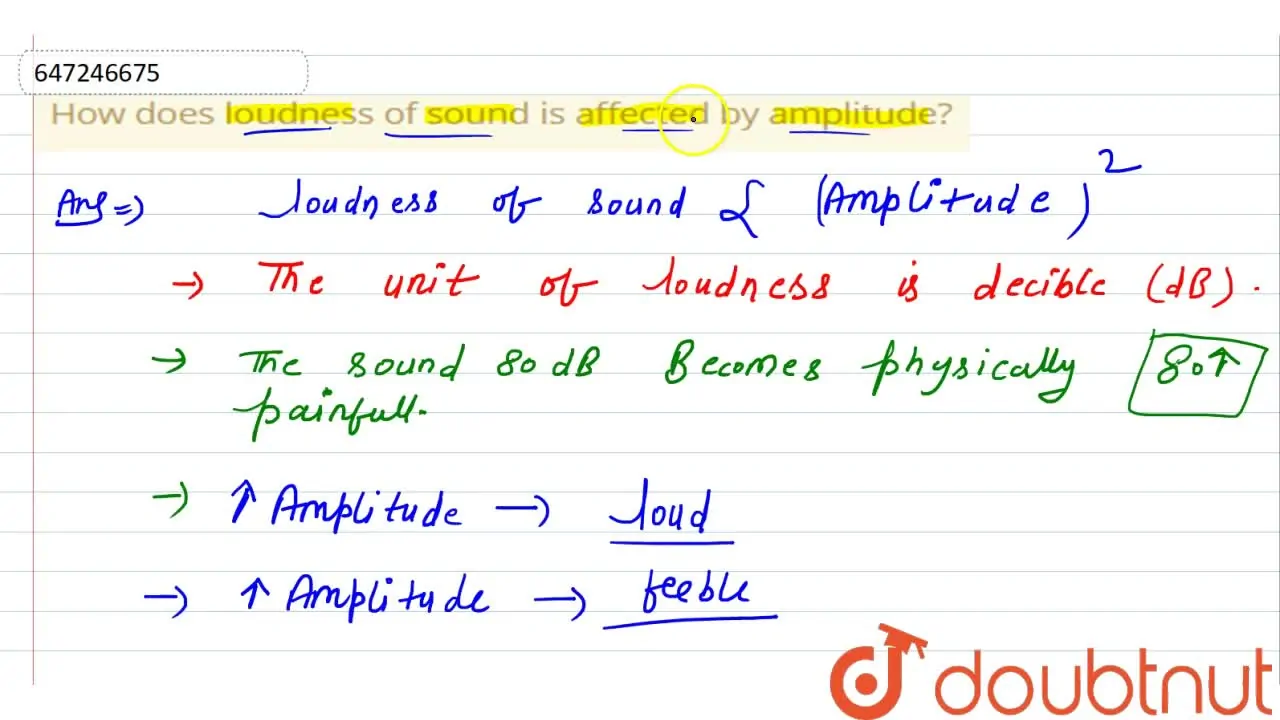 647246675
How does loudness of sound is affected by amplitude?
Ans ⇒ loudness of sound ∝ (Amplitude)²
→ The unit of loudness is decible (dB).
→ The sound 80 dB Becomes physically 80↑
painfull.
→ ↑ Amplitude → loud
→ ↑ Amplitude → feeble
doubtnut